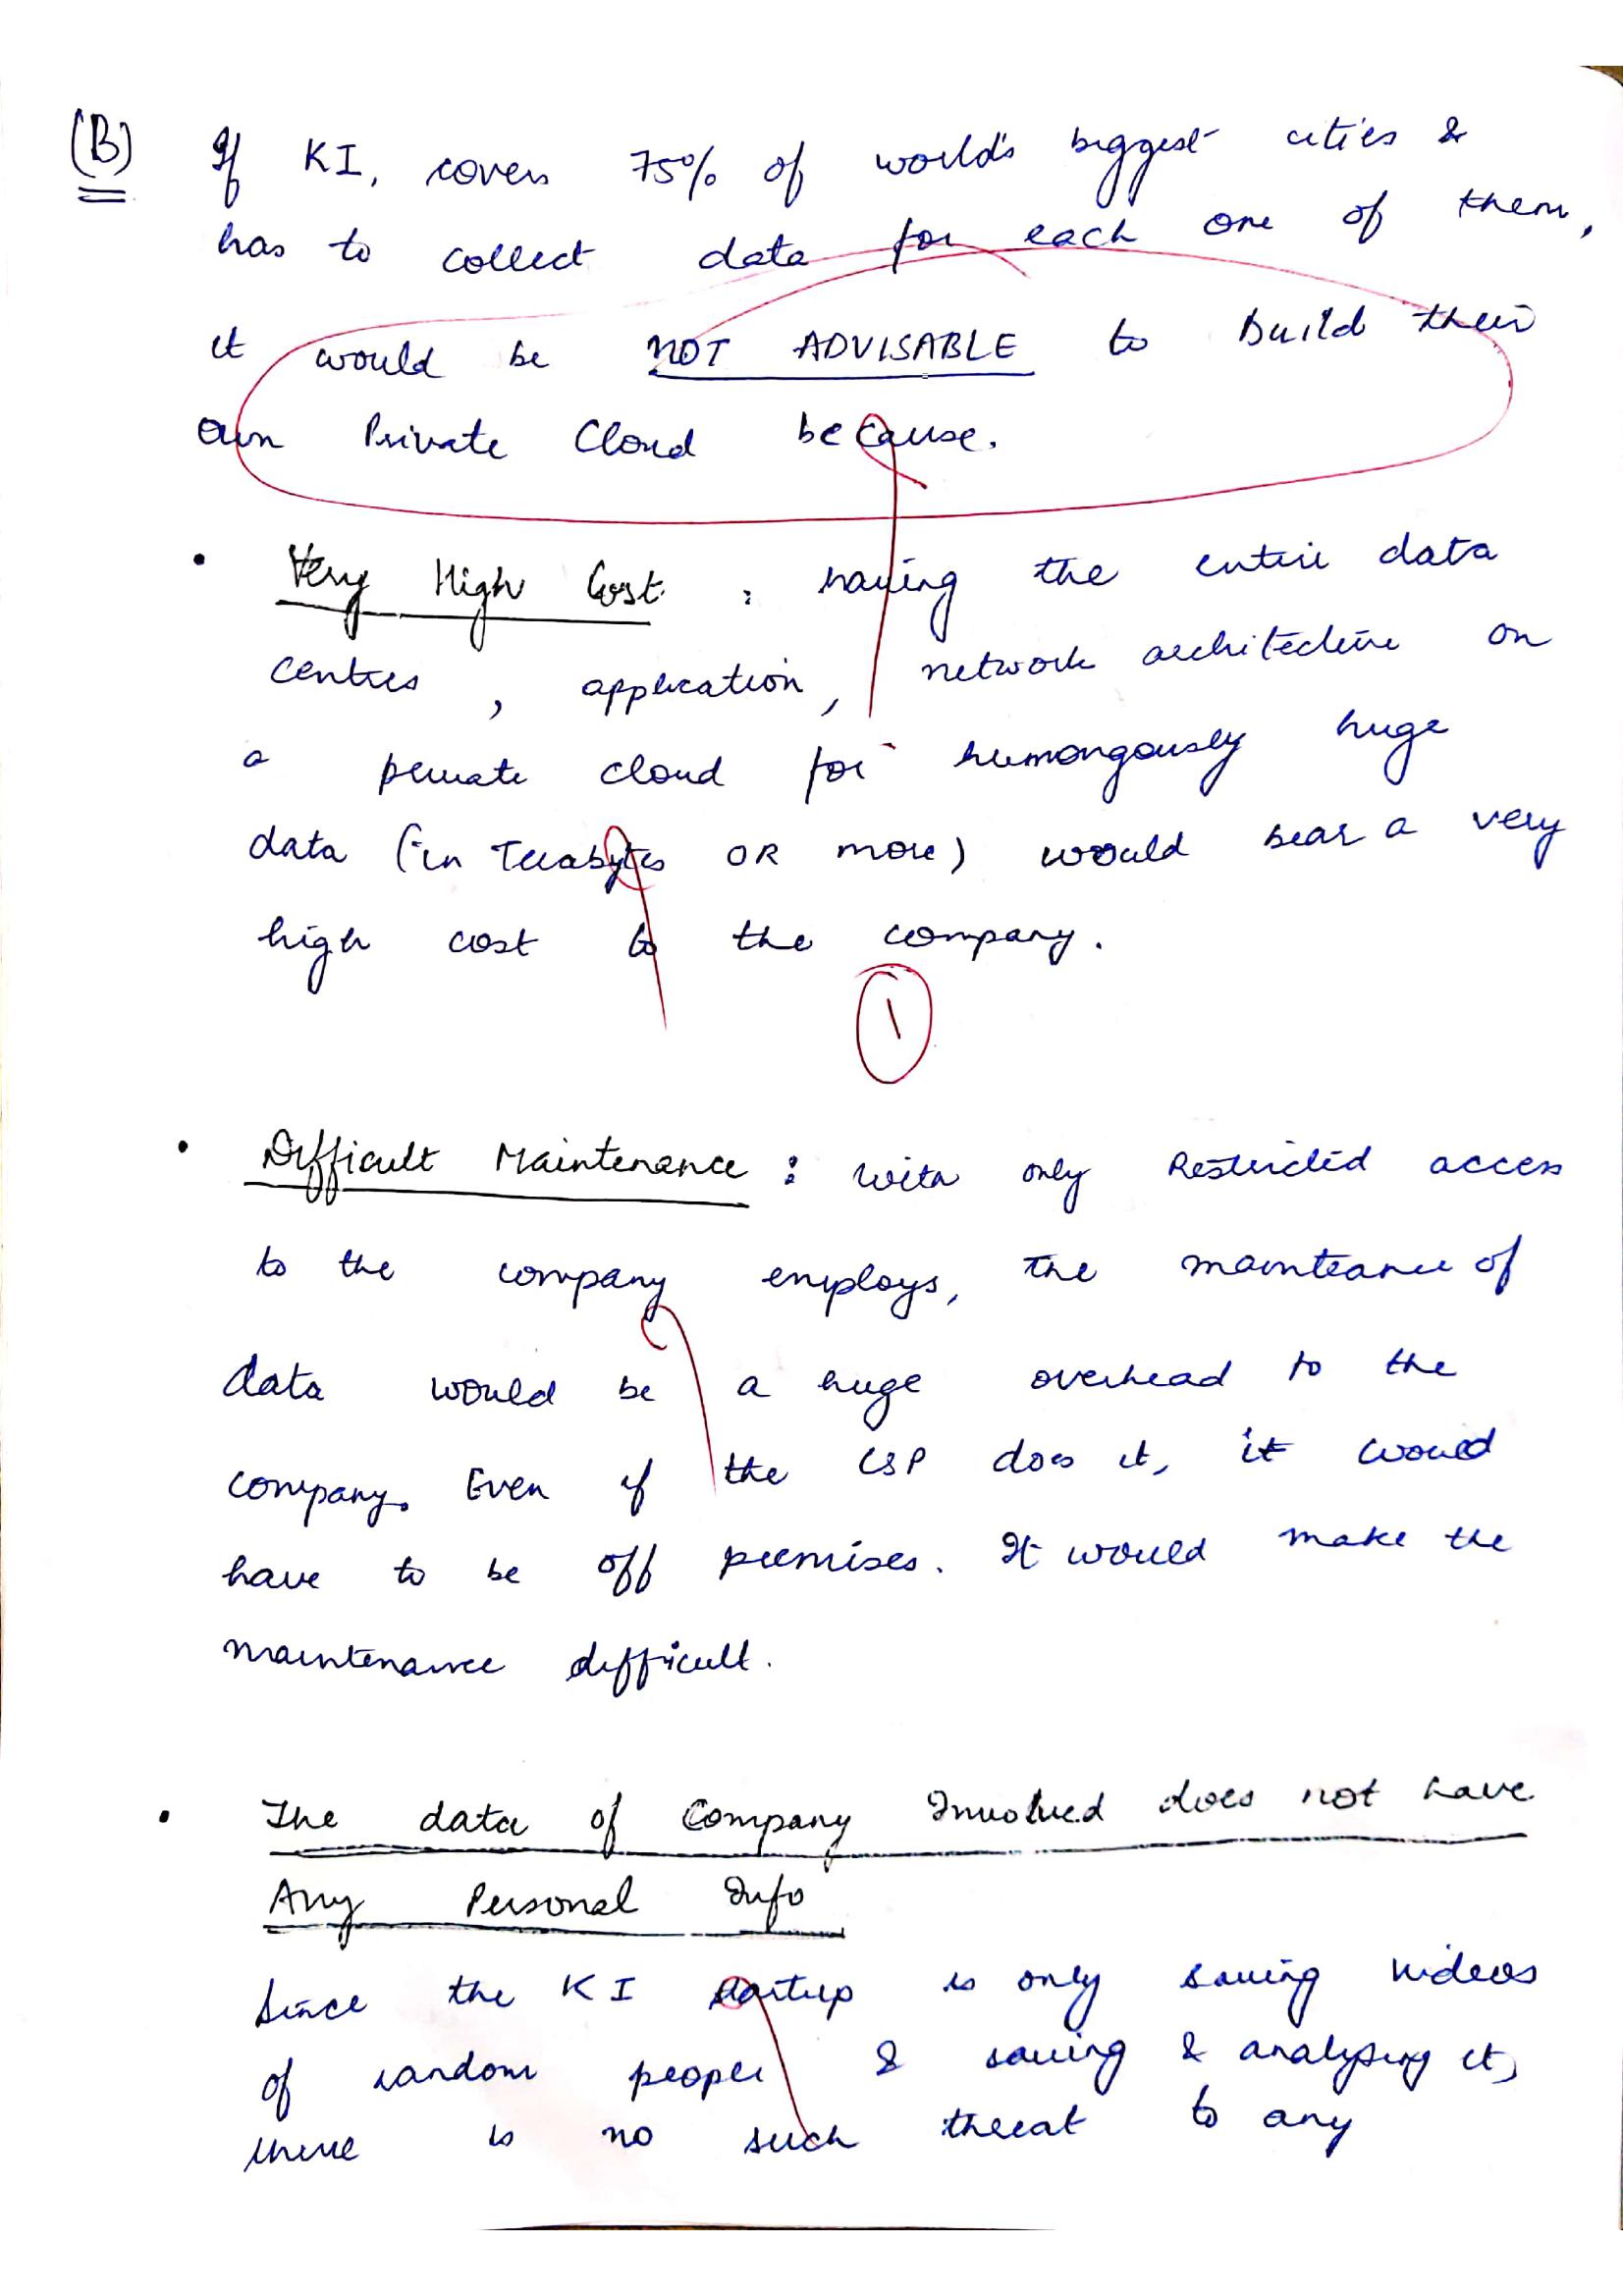 (B) If KI, covers 75% of world's biggest cities &
has to collect data for each one of them,
it would be NOT ADVISABLE to Build their
own Private Cloud because.
• Very High Cost : having the entire data
centres, application, network architecture on
a private cloud for humongously huge
data (in Terabytes OR more) would bear a very
high cost to the company.
1
• Difficult Maintenance : with only Restricted access
to the company employs, the mainteance of
data would be a huge overhead to the
company. Even if the CSP does it, it would
have to be off premises. It would make the
maintenance difficult.
• The data of Company Involved does not have
Any Personal Info
Since the KI startup is only saving videos
of random people & saving & analysing it,
there is no such threat to any